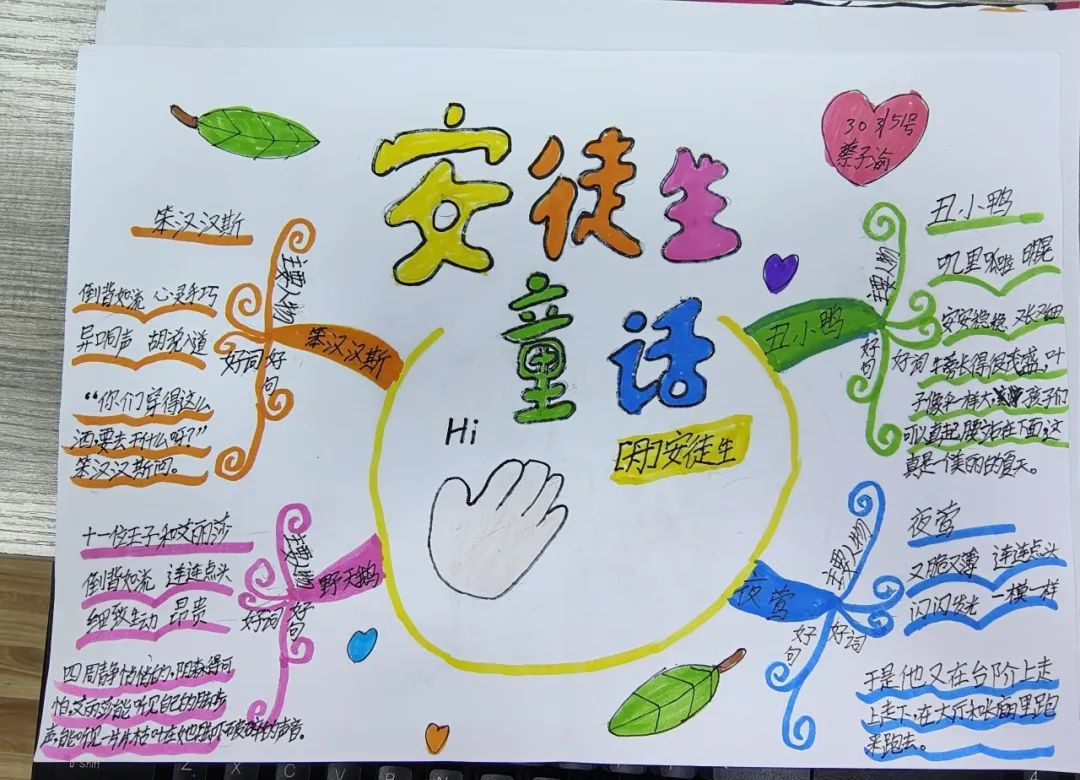 安徒生
童话
303班51号
蔡子渝
Hi
[丹]安徒生
笨汉汉斯
笨汉汉斯
主要人物
好词
好句
倒背如流 心灵手巧
异口同声 胡说八道
“你们穿得这么
洒,要去干什么呀?”
笨汉汉斯问。
丑小鸭
丑小鸭
主要人物
好词
好句
叽里呱啦 明晃
安安稳稳 又长又细
牛蒡长得很茂盛,叶
子像伞一样大,孩子们
可以直起腰站在下面,这
真是一个美丽的夏天。
野天鹅
主要人物
好词
好句
十一位王子和艾丽莎
倒背如流 连连点头
细致生动 昂贵
四周静悄悄的,阴森得可
怕,艾丽莎能听见自己的脚步
声,能听见一片片枯叶在她脚下破碎的声音。
夜莺
夜莺
主要人物
好词
好句
又脆又薄 连连点头
闪闪发光 一模一样
于是他又在台阶上走
上走下,在大厅和长廊里跑
来跑去。
Shift
Z X C V B N M